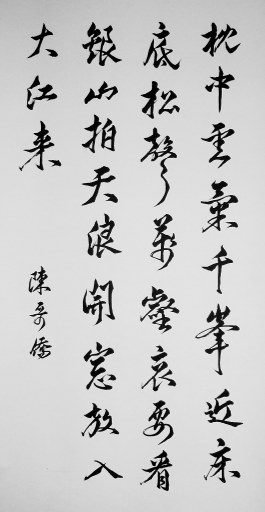 枕中雲氣千峯近床
底松聲萬壑哀要看
銀山拍天浪開窓放入
大江来
陳